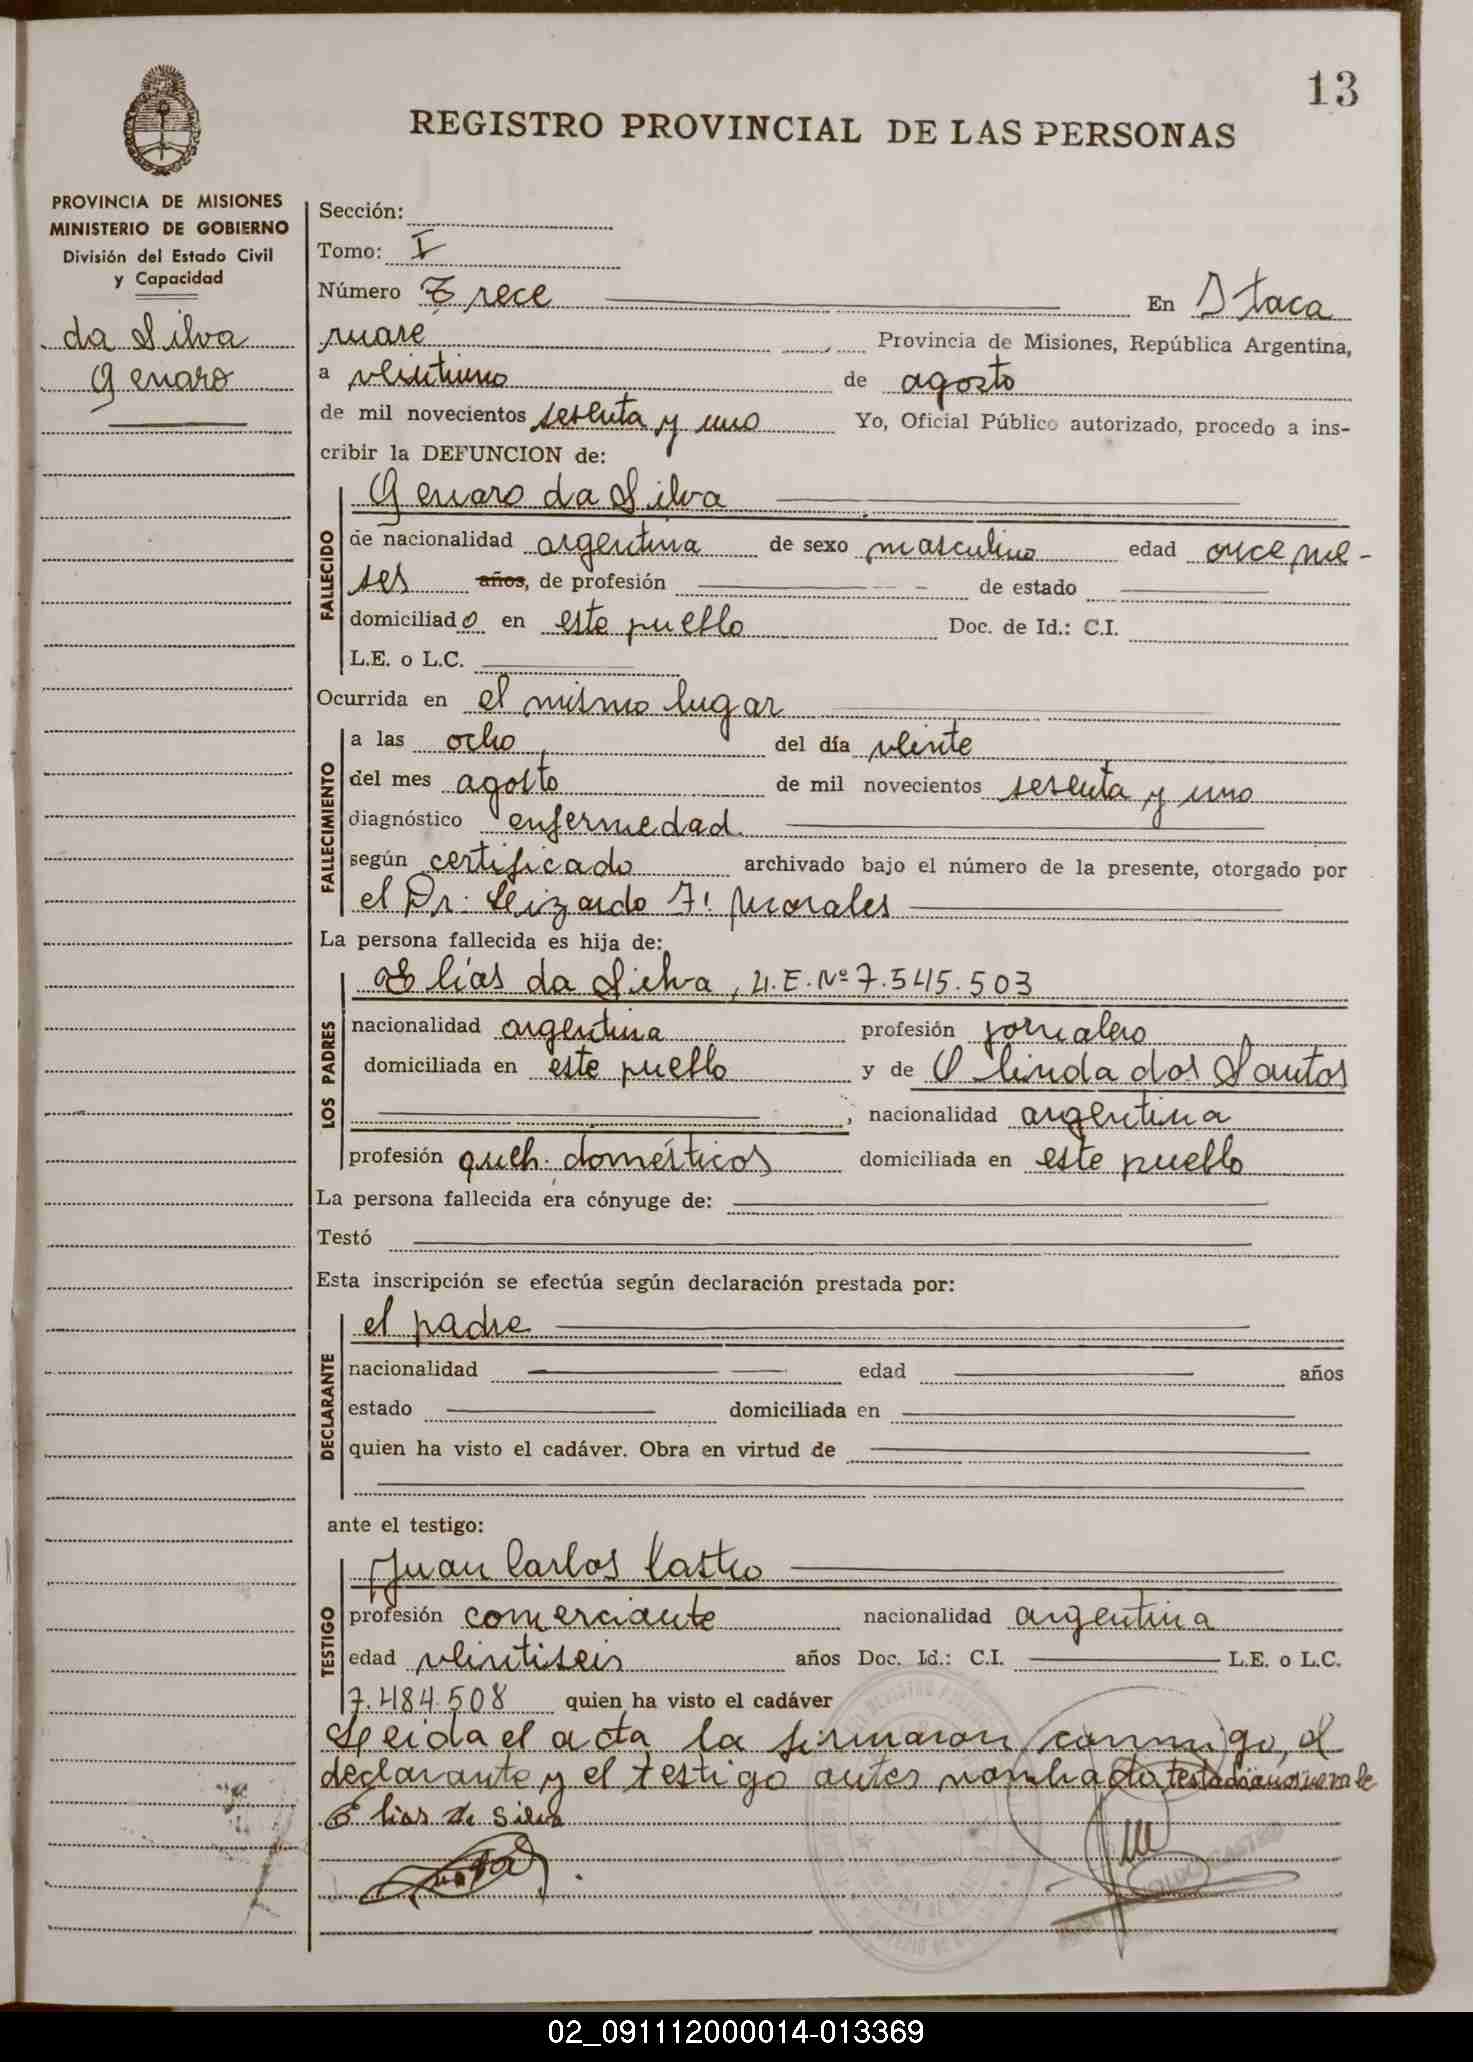 13
REGISTRO PROVINCIAL DE LAS PERSONAS
PROVINCIA DE MISIONES
MINISTERIO DE GOBIERNO
División del Estado Civil
y Capacidad
da Silva
Genaro
Sección:
Tomo: I
Número Trece En Itaca
ruare Provincia de Misiones, República Argentina,
a veintiuno de agosto
de mil novecientos sesenta y uno Yo, Oficial Público autorizado, procedo a ins-
cribir la DEFUNCION de:
FALLECIDO
Genaro da Silva
de nacionalidad argentina de sexo masculino edad once me-
ses años, de profesión de estado
domiciliado en este pueblo Doc. de Id.: C.I.
L.E. o L.C.
Ocurrida en el mismo lugar
FALLECIMIENTO
a las ocho del día veinte
del mes agosto de mil novecientos sesenta y uno
diagnóstico enfermedad
según certificado archivado bajo el número de la presente, otorgado por
el Dr. Lizardo F. Morales
La persona fallecida es hija de:
LOS PADRES
Elías da Silva, L.E. Nº 7.545.503
nacionalidad argentina profesión jornalero
domiciliada en este pueblo y de Olinda dos Santos
, nacionalidad argentina
profesión queh. domésticos domiciliada en este pueblo
La persona fallecida era cónyuge de:
Testó
Esta inscripción se efectúa según declaración prestada por:
DECLARANTE
el padre
nacionalidad edad años
estado domiciliada en
quien ha visto el cadáver. Obra en virtud de
ante el testigo:
TESTIGO
Juan Carlos Castro
profesión comerciante nacionalidad argentina
edad veintiseis años Doc. Id.: C.I. L.E. o L.C.
7.484.508 quien ha visto el cadáver
Leida el acta la firmaron conmigo, el
declarante y el testigo antes nombrado testado años no vale
Elias da Silva
02_091112000014-013369